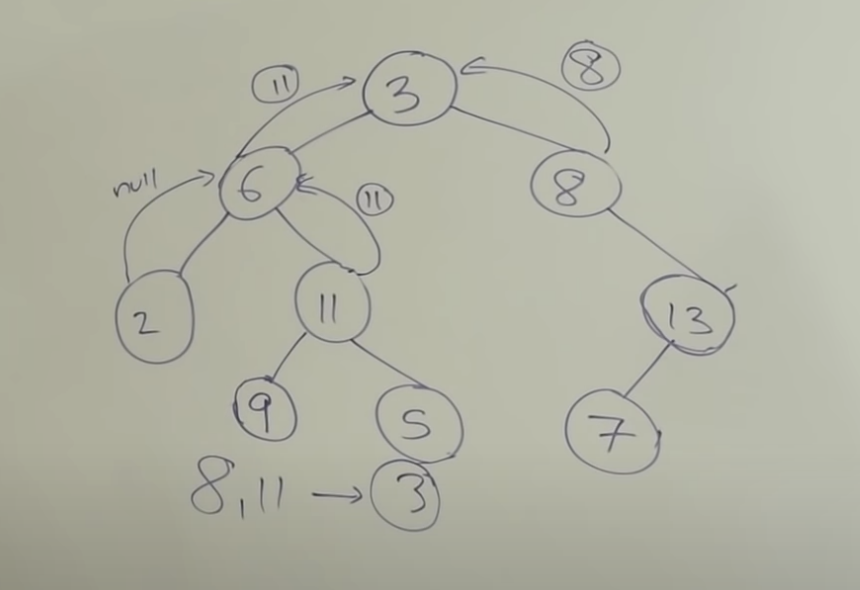 11 3 8
null 6 11 8
2 11 13
9 5 7
8,11 → 3